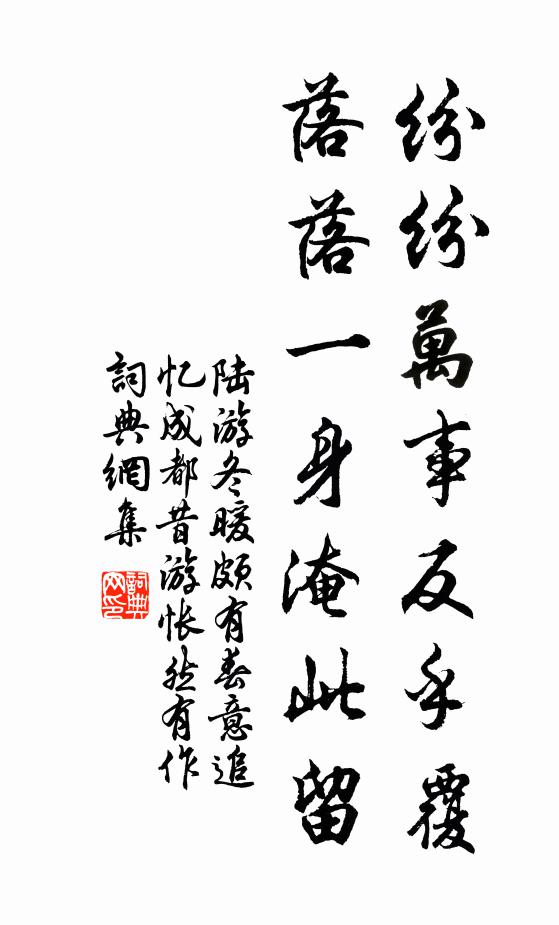 紛紛萬事反手覆
落落一身淹此留
陆游冬暖頗有春意追
忆成都昔游怅然有作
詞典網集
詞典
网印